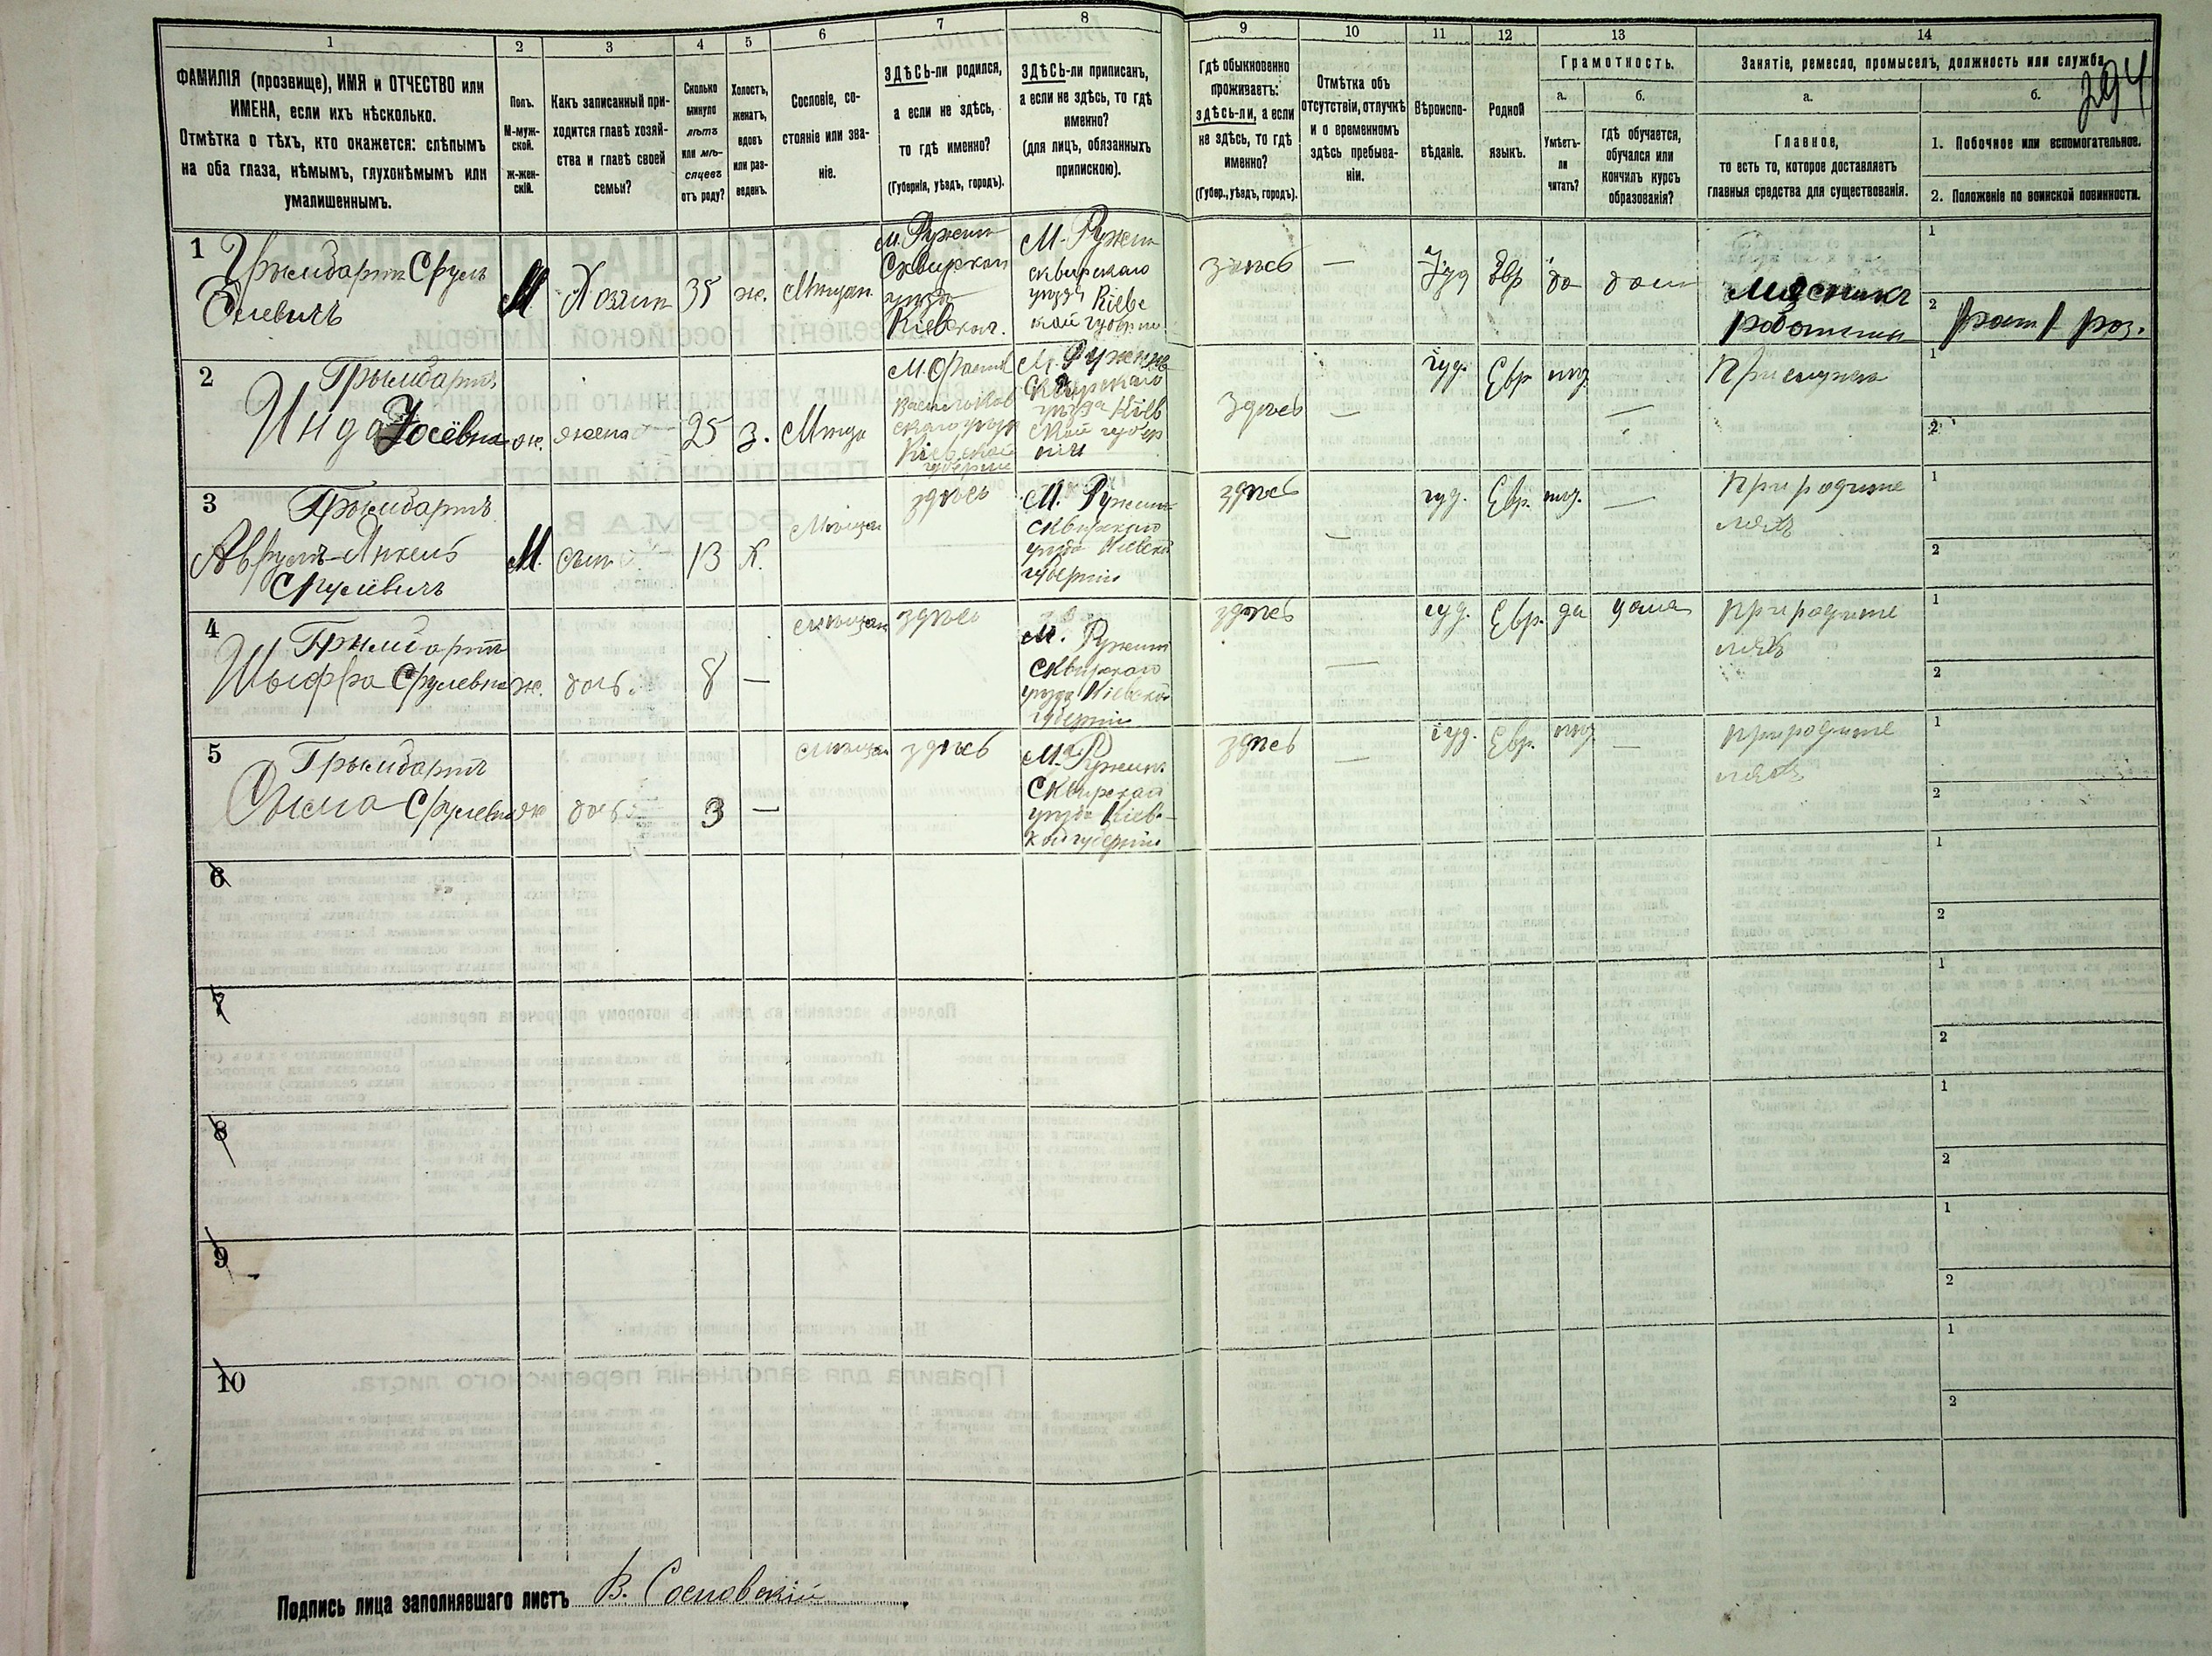 1 2 3 4 5 6 7 8 9 10 11 12 13 14
ФАМИЛІЯ (прозвище), ИМЯ и ОТЧЕСТВО или
ИМЕНА, если ихъ нѣсколько.
Отмѣтка о тѣхъ, кто окажется: слѣпымъ
на оба глаза, нѣмымъ, глухонѣмымъ или
умалишеннымъ.
Полъ.
М-муж-
ской.
ж-жен-
скій.
Какъ записанный при-
ходится главѣ хозяй-
ства и главѣ своей
семьи?
Сколько
минуло
лѣтъ
или мѣ-
сяцевъ
отъ роду?
Холостъ,
женатъ,
вдовъ
или раз-
веденъ.
Сословіе, со-
стояніе или зва-
ніе.
ЗДѢСЬ-ли родился,
а если не здѣсь,
то гдѣ именно?
(Губернія, уѣздъ, городъ).
ЗДѢСЬ-ли приписанъ,
а если не здѣсь, то гдѣ
именно?
(для лицъ, обязанныхъ
припискою).
Гдѣ обыкновенно
проживаетъ:
здѣсь-ли, а если
не здѣсь, то гдѣ
именно?
(Губер., уѣздъ, городъ).
Отмѣтка объ
отсутствіи, отлучкѣ
и о временномъ
здѣсь пребыва-
ніи.
Вѣроиспо-
вѣданіе.
Родной
языкъ.
Грамотность.
а.
Умѣетъ-
ли
читать?
б.
гдѣ обучается,
обучался или
кончилъ курсъ
образованія?
Занятіе, ремесло, промыселъ, должность или служба.
294
а.
Главное,
то есть то, которое доставляетъ
главныя средства для существованія.
б.
1. Побочное или вспомогательное.
2. Положеніе по воинской повинности.
1
Срулъ
М Хозяин 35 ж. Мѣщан.
М. Ружин
Сквиркаи
Кіевская.
М. Ружин
сквирскаго
Кіевс
кой
здѣсь — Іуд Евр да
мясникъ
1
2
2 Грымбартъ
Инда Іосёвна ж. жена 25 з.
Васильков
скаго
Кіевской
губерніи
Сквирскаго
уѣзда Кіев
ской губер
ніи
здѣсь — іуд. Евр —
Прислуга
1
2
3 Грымбартъ
Аврумъ-Янкель
Срулёвичъ
М. сын 13 Х. Мѣщан здѣсь
М. Ружин
Сквирскаго
уѣзда Кіевской
губерніи
здѣсь — іуд. Евр. —
При родите
ляхъ
1
2
4 Грымбартъ
Шыффра Срулевна ж. доч. 8 — мѣщан здѣсь
М. Ружин
Сквирскаго
уѣзда Кіевской
губерніи
здѣсь — іуд. Евр. да дома
При родите
ляхъ
1
2
5 Грымбартъ
Сыма Срулевна ж доч 3 — мѣщан здѣсь
М. Ружин
Сквирскаго
уѣзда Кіевс-
кой губерніи
здѣсь — іуд. Евр. —
при родите
ляхъ
1
2
6
1
2
7
1
2
8
1
2
9
1
2
10
1
2
Подпись лица заполнявшаго листъ В. Сосновскій